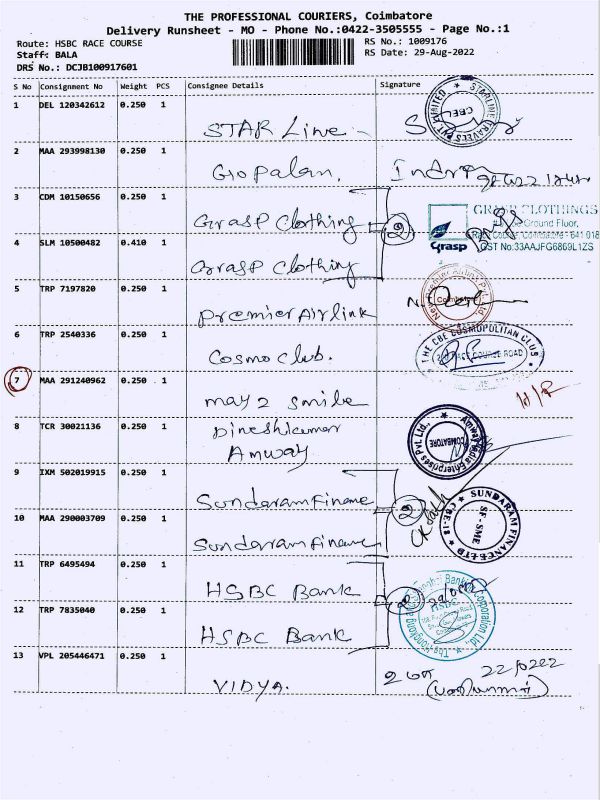 THE PROFESSIONAL COURIERS, Coimbatore
Delivery Runsheet - MO - Phone No.:0422-3505555 - Page No.:1
Route: HSBC RACE COURSE
Staff: BALA
DRS No.: DCJB100917601
RS No.: 1009176
RS Date: 29-Aug-2022
S No Consignment No Weight PCS Consignee Details Signature
1 DEL 120342612 0.250 1
STAR Line
2 MAA 293998130 0.250 1
Gopalan.
3 CDM 10150656 0.250 1
Grasp Clothing
2
GRASP CLOTHINGS
Ground Floor,
641 018
Grasp
GST No:33AAJFG6869L1ZS
4 SLM 10500482 0.410 1
Grasp Clothing
5 TRP 7197820 0.250 1
Premier Airlink
Coimbatore
6 TRP 2540336 0.250 1
Cosmo Club.
THE CBE COSMOPOLITAN CLUB
RACE COURSE ROAD
7 MAA 291240962 0.250 1
may 2 smile
8 TCR 30021136 0.250 1
Dineshkumar
Amway
COIMBATORE
9 IXM 502019915 0.250 1
Sundaram Finance
2
SUNDARAM FINANCE LTD
SF-SME
CBE-18
10 MAA 290003709 0.250 1
Sundaram Finance
11 TRP 6495494 0.250 1
HSBC Bank
2
HSBC
12 TRP 7835040 0.250 1
HSBC Bank
13 VPL 205446471 0.250 1
VIDYA.